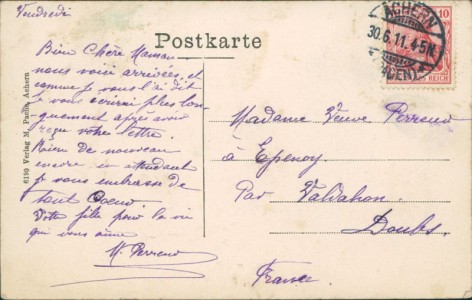 Vendredi
Postkarte
ACHERN
30.6.11. 4-5N.
(BADEN)
10
REICH
6190 Verlag M. Paulin, Achern
Bien Chère Maman
nous voici arrivées, et
comme je vous l'ai dit
je vous écrirai plus lon-
guement après avoir
reçu votre lettre.
Rien de nouveau
encore en attendant
je vous embrasse de
tout Coeur.
Votre fille pour la vie
qui vous aime
M. Perreud
Madame Veuve Perreud
à Epenoy
Par Valdahon
Doubs
France.